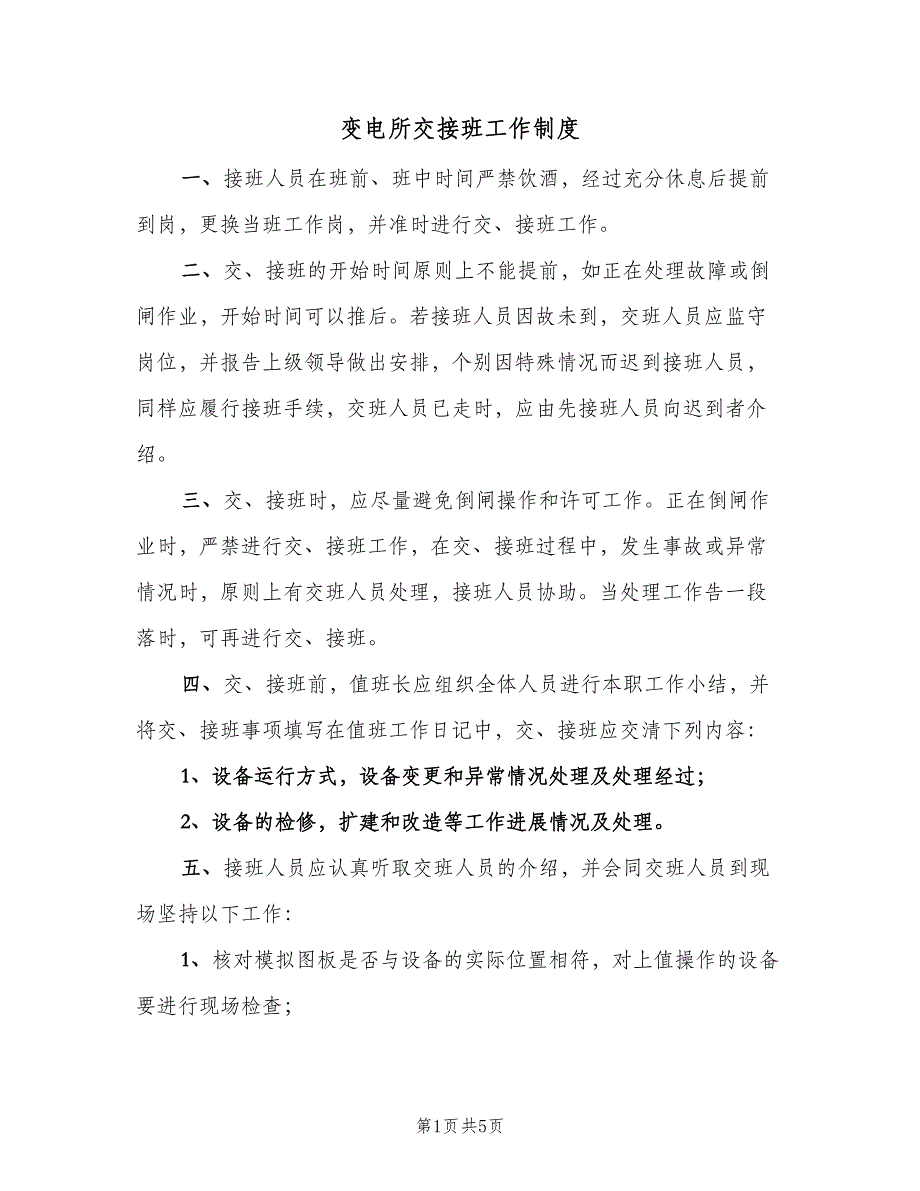 变电所交接班工作制度
一、接班人员在班前、班中时间严禁饮酒，经过充分休息后提前
到岗，更换当班工作岗，并准时进行交、接班工作。
二、交、接班的开始时间原则上不能提前，如正在处理故障或倒
闸作业，开始时间可以推后。若接班人员因故未到，交班人员应监守
岗位，并报告上级领导做出安排，个别因特殊情况而迟到接班人员，
同样应履行接班手续，交班人员已走时，应由先接班人员向迟到者介
绍。
三、交、接班时，应尽量避免倒闸操作和许可工作。正在倒闸作
业时，严禁进行交、接班工作，在交、接班过程中，发生事故或异常
情况时，原则上有交班人员处理，接班人员协助。当处理工作告一段
落时，可再进行交、接班。
四、交、接班前，值班长应组织全体人员进行本职工作小结，并
将交、接班事项填写在值班工作日记中，交、接班应交清下列内容：
1、设备运行方式，设备变更和异常情况处理及处理经过；
2、设备的检修，扩建和改造等工作进展情况及处理。
五、接班人员应认真听取交班人员的介绍，并会同交班人员到现
场坚持以下工作：
1、核对模拟图板是否与设备的实际位置相符，对上值操作的设备
要进行现场检查；
第1页共5页